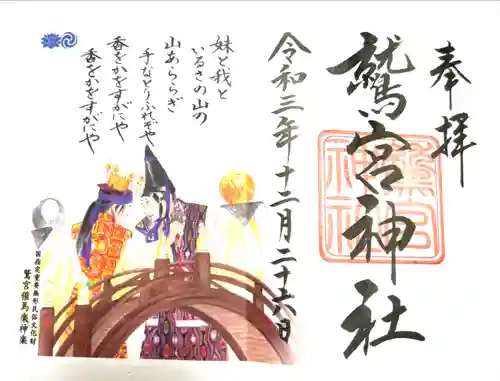 奉拝
鷲宮神社
鷲宮神社
令和三年十二月二十六日
妹と我と
いるさの山の
山あららぎ
手なとりふれそや
香をかをすがにや
香をかをすがにや
国指定重要無形民俗文化財
鷲宮催馬楽神楽